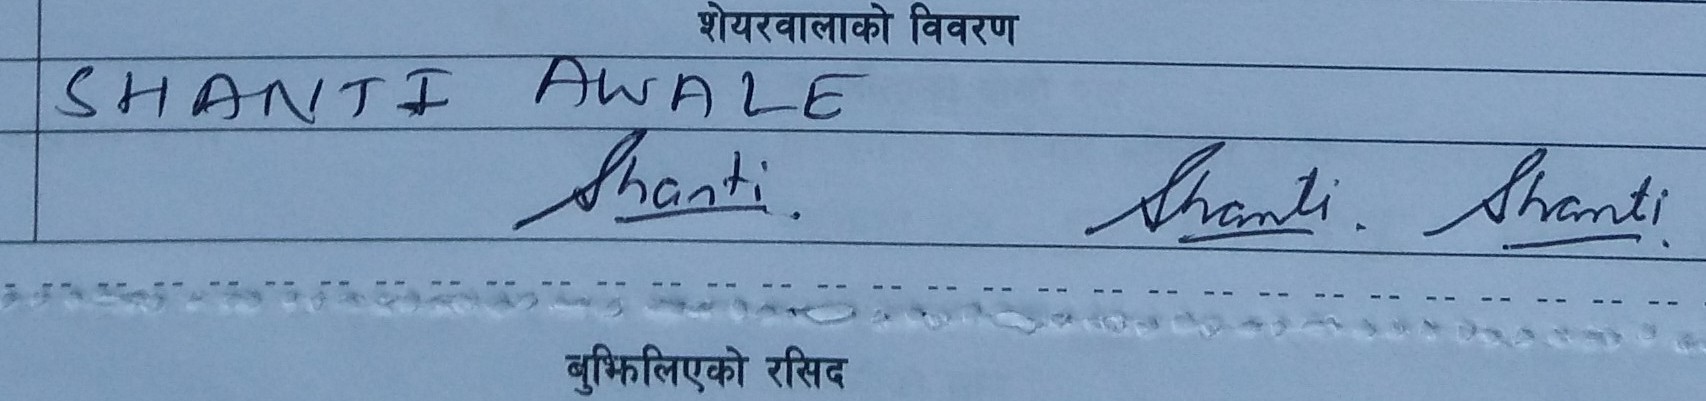 शेयरवालाको विवरण
SHANTI AWALE
Shanti. Shanti. Shanti.
बुझिलिएको रसिद